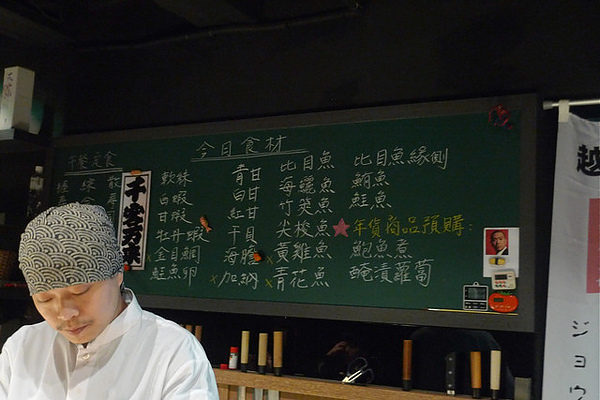 今日食材
午餐定食
千客万来
軟絲
白蝦
甘蝦
牡丹蝦
×金目鯛
鮭魚卵
青甘
白甘
紅甘
干貝
海膽
×加納
比目魚
海鱺魚
竹筴魚
尖梭魚
×黃雞魚
×青花魚
比目魚緣側
鮪魚
鮭魚
★年货商品預購:
鮑魚煮
醃漬蘿蔔
越
ジョウ